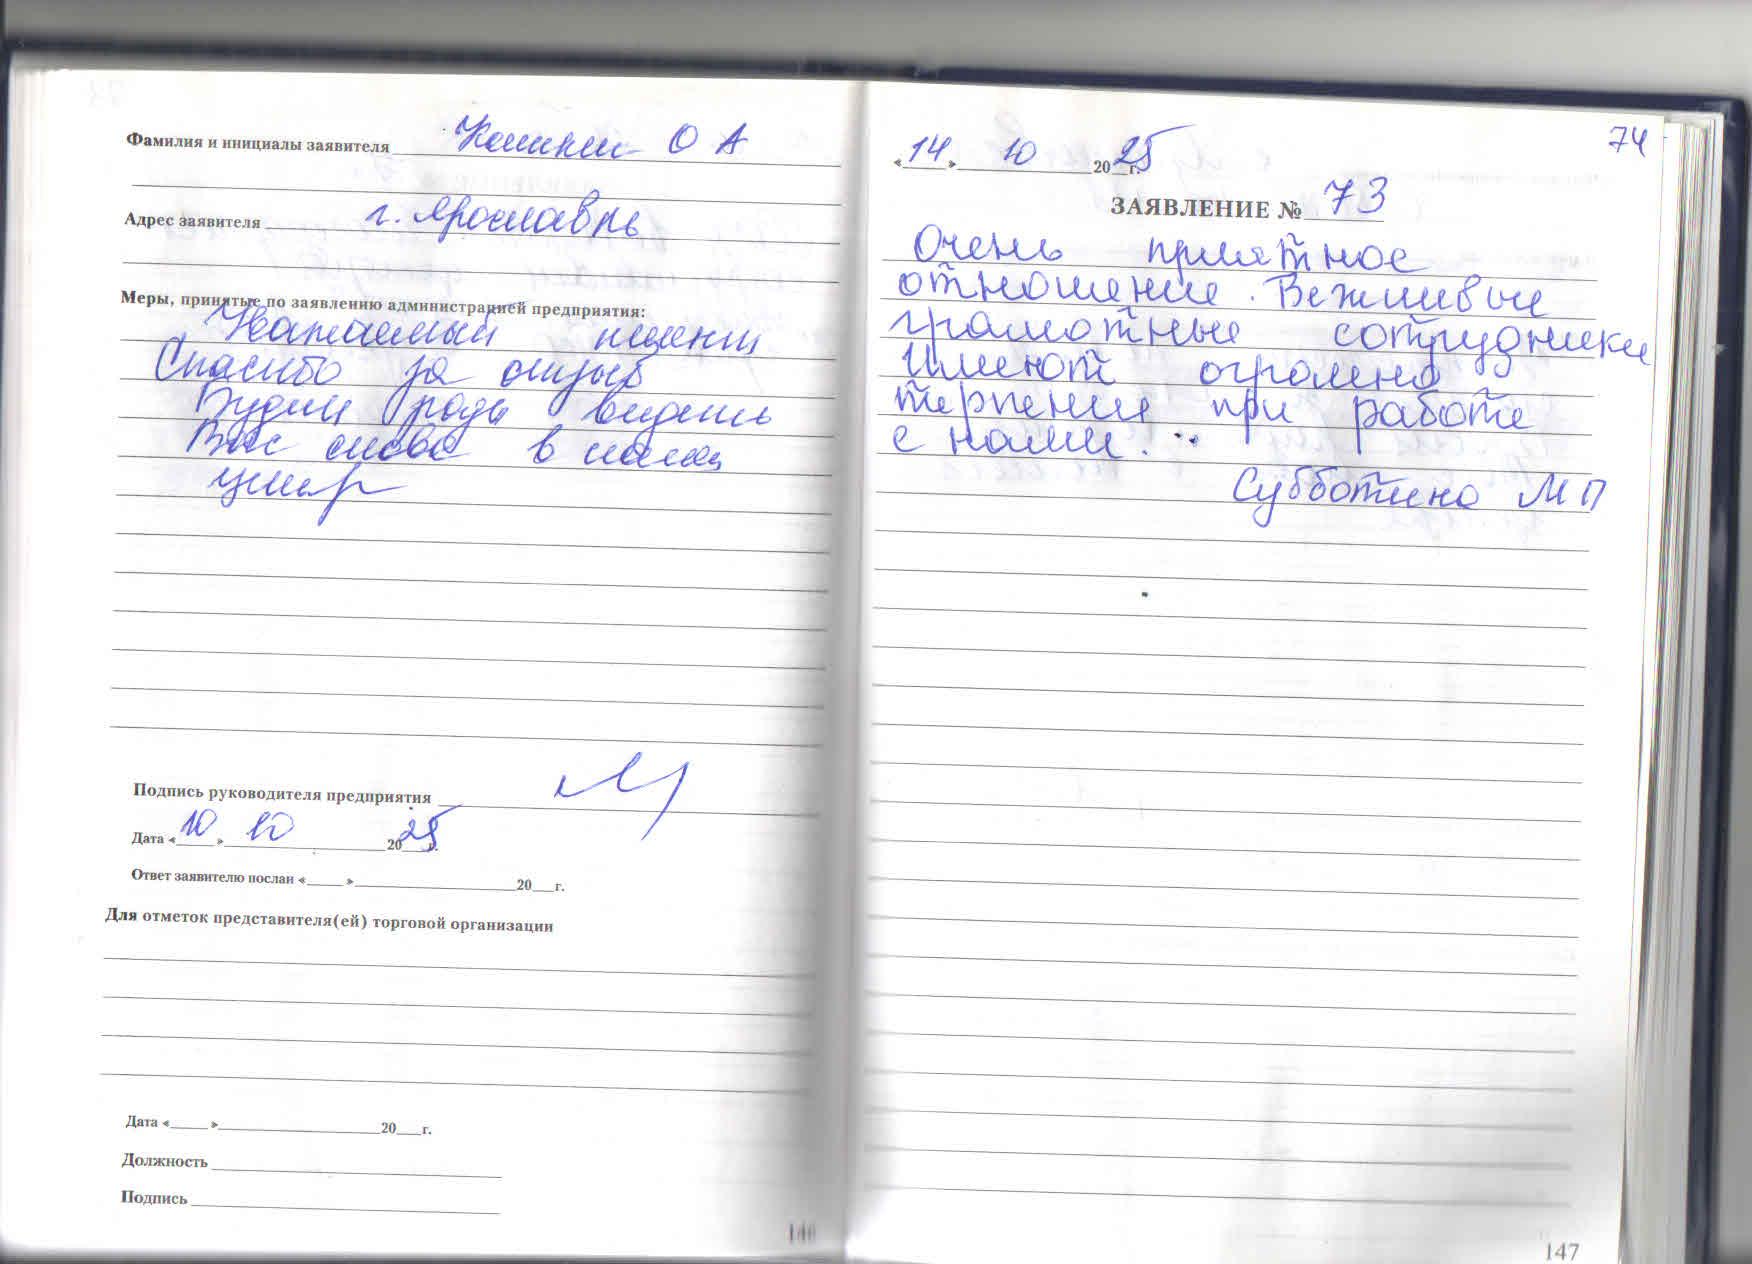 Фамилия и инициалы заявителя О А
Адрес заявителя г. Ярославль
Меры, принятые по заявлению администрацией предприятия:
Уважаемый
Спасибо за отзыв
Будем рады видеть
Вас снова в наш
центр
Подпись руководителя предприятия
Дата «10» 10 2025 г.
Ответ заявителю послан «___»___ 20__г.
Для отметок представителя(ей) торговой организации
Дата «___»___ 20__г.
Должность
Подпись
146
74
«14» 10 2025 г.
ЗАЯВЛЕНИЕ № 73
Очень приятное
отношение. Вежливые
грамотные сотрудники
Имеют огромено
терпения при работе
с нами.
Субботина М П
147